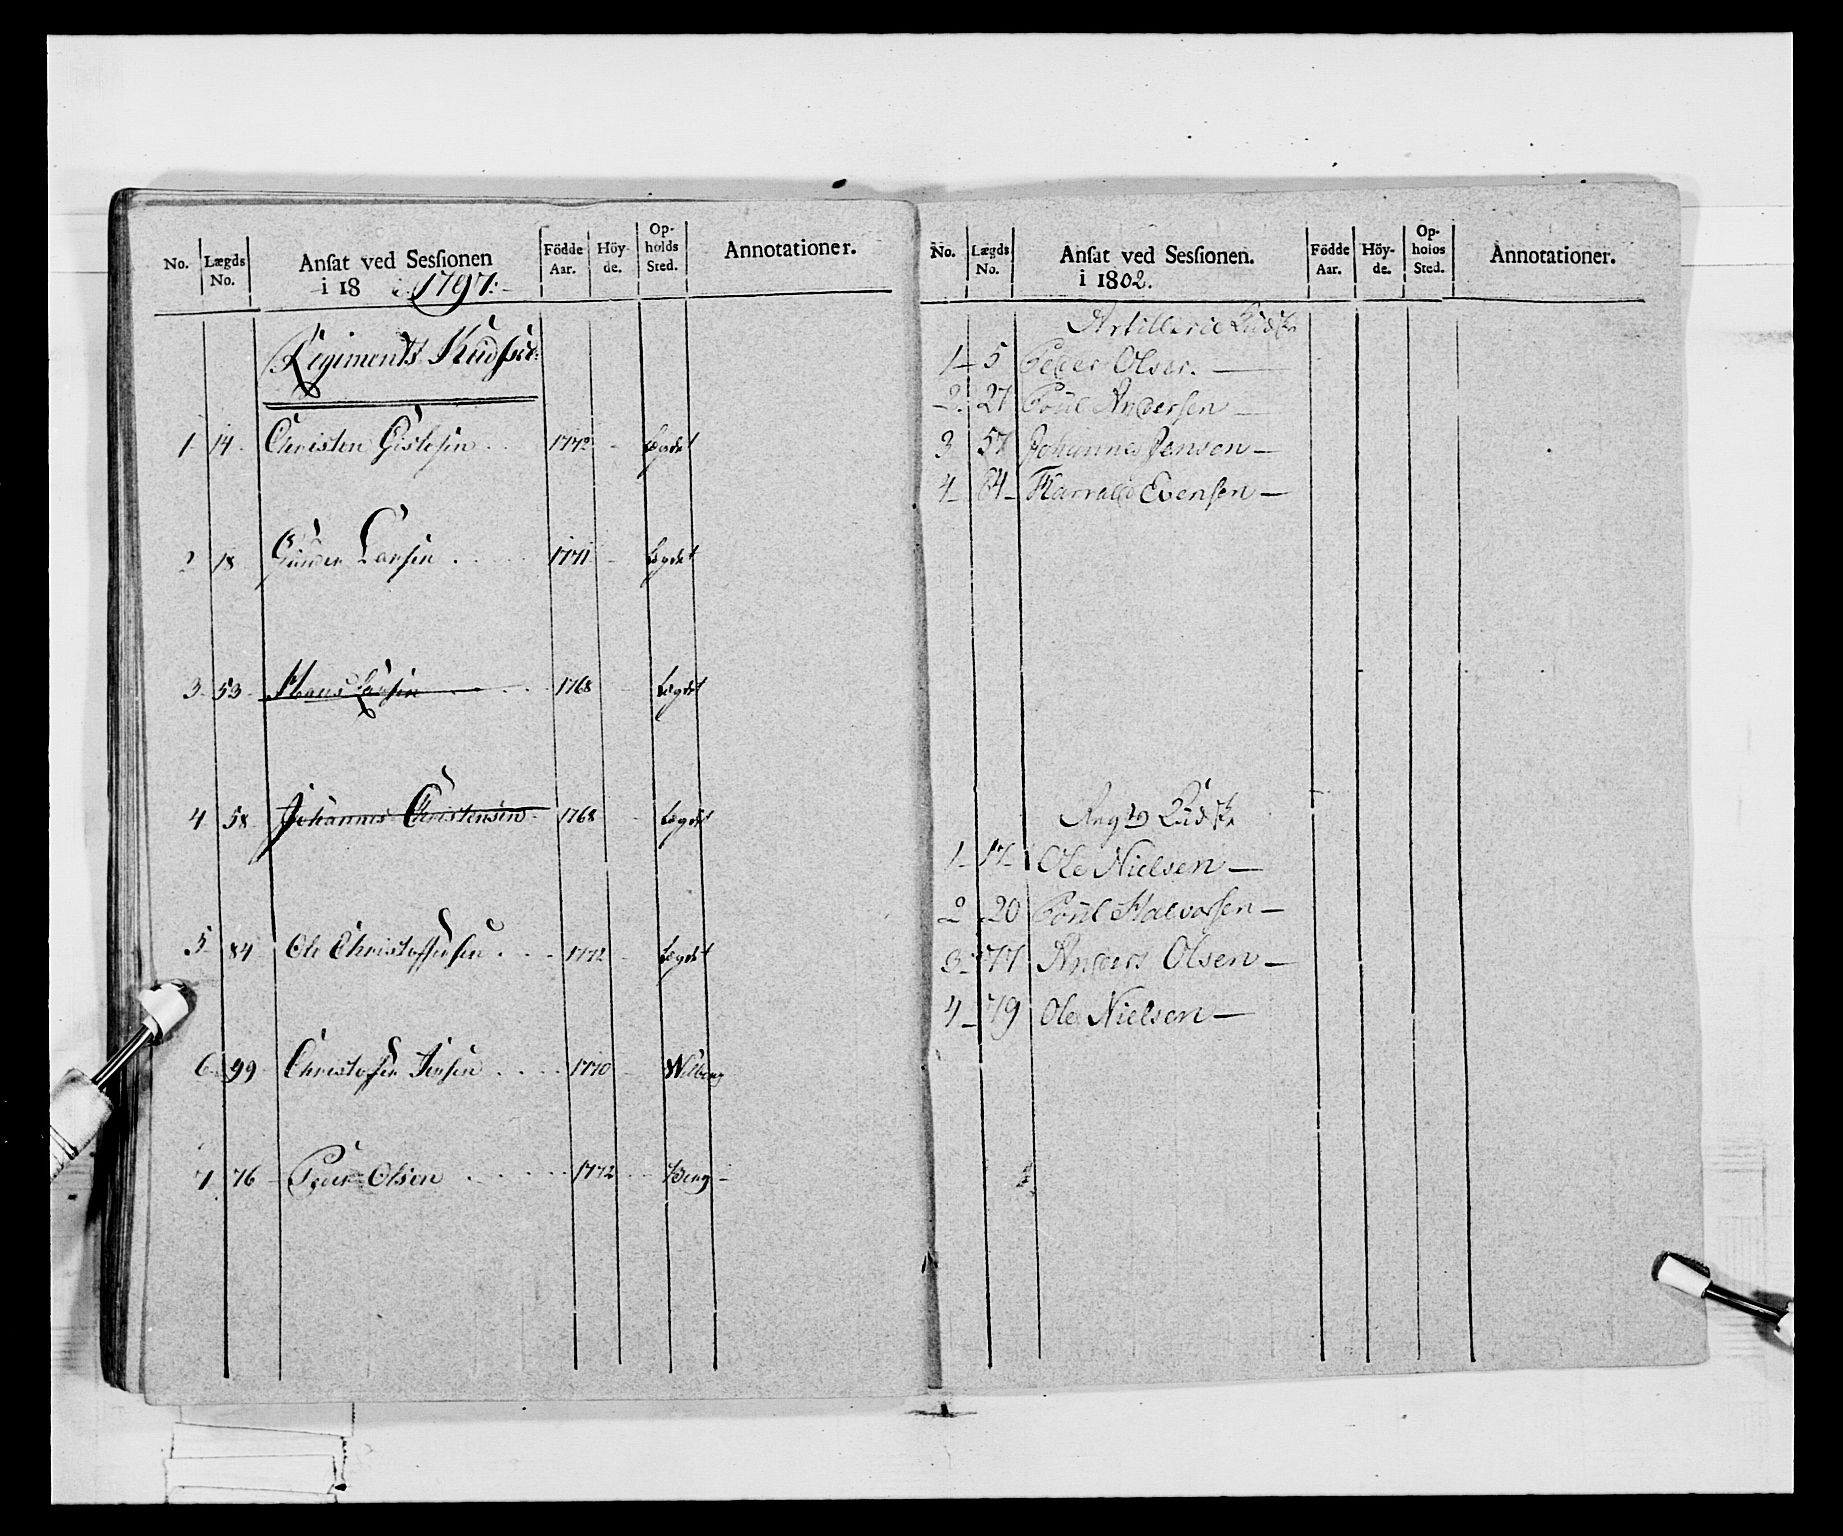 No. Lægds No. Anſat ved Sesſionen i 18 1797. Födde Aar. Höyde. Opholds Sted. Annotationer.
Regiments Kudsk:
1. 14. Christen Gislesen 1772 Lægdet
2 18 Gunder Larsen 1771 Lægdet
3. 53. Hans Larsen 1768 Lægdet
4 58 Johannes Christensen 1768 Lægdet
5 84 Ole Christophersen 1772 Lægdet
6 99 Christopher Jensen 1770 Wilberg
7. 76 Peder Olsen 1772 Berg
No. Lægds No. Anſat ved Sesſionen. i 1802. Födde Aar. Höyde. Opholds Sted. Annotationer.
Artillerie Kudsk
1 5 Peder Olsen.
2. 27 Poul Andersen
3 57 Johannes Jensen
4 64 Harrald Evensen
Kudsk
1 17 Ole Nielsen
2 20 Poul Halvorsen
3 77 Anders Olsen
4 79 Ole Nielsen